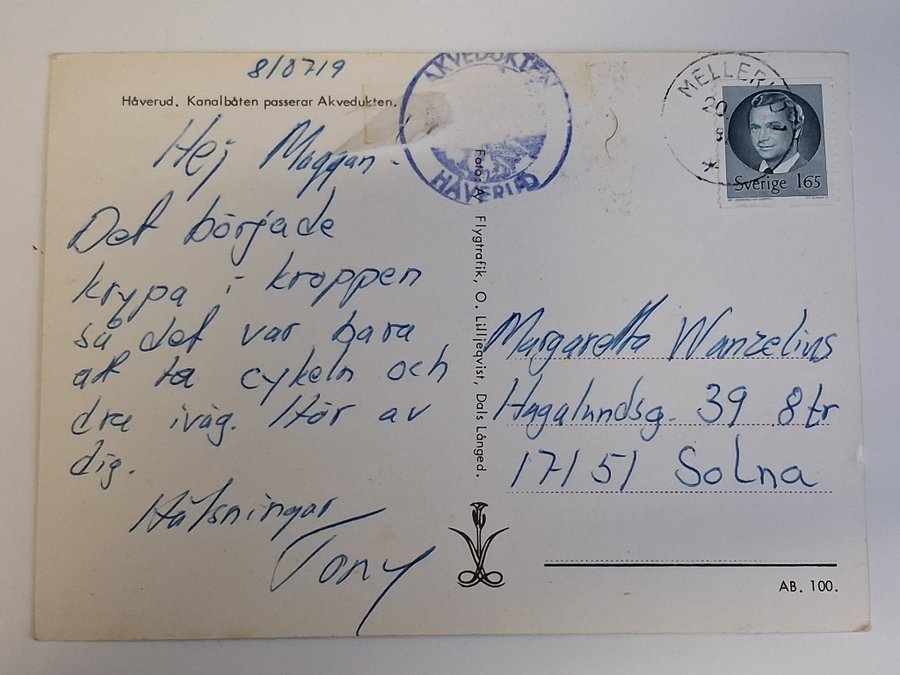 810719
Håverud. Kanalbåten passerar Akvedukten.
Hej Maggan!
Det började
krypa i kroppen
så det var bara
att ta cykeln och
dra iväg. Hör av
dig.
Hälsningar
Tony
AKVEDUKTEN
HÅVERUD
Foto: A. Flygtrafik, O. Lilljeqvist, Dals Långed.
MELLERUD
20
Sverige 165
Margaretta Wanzelius
Hagalundsg. 39 8tr
17151 Solna
AB. 100.